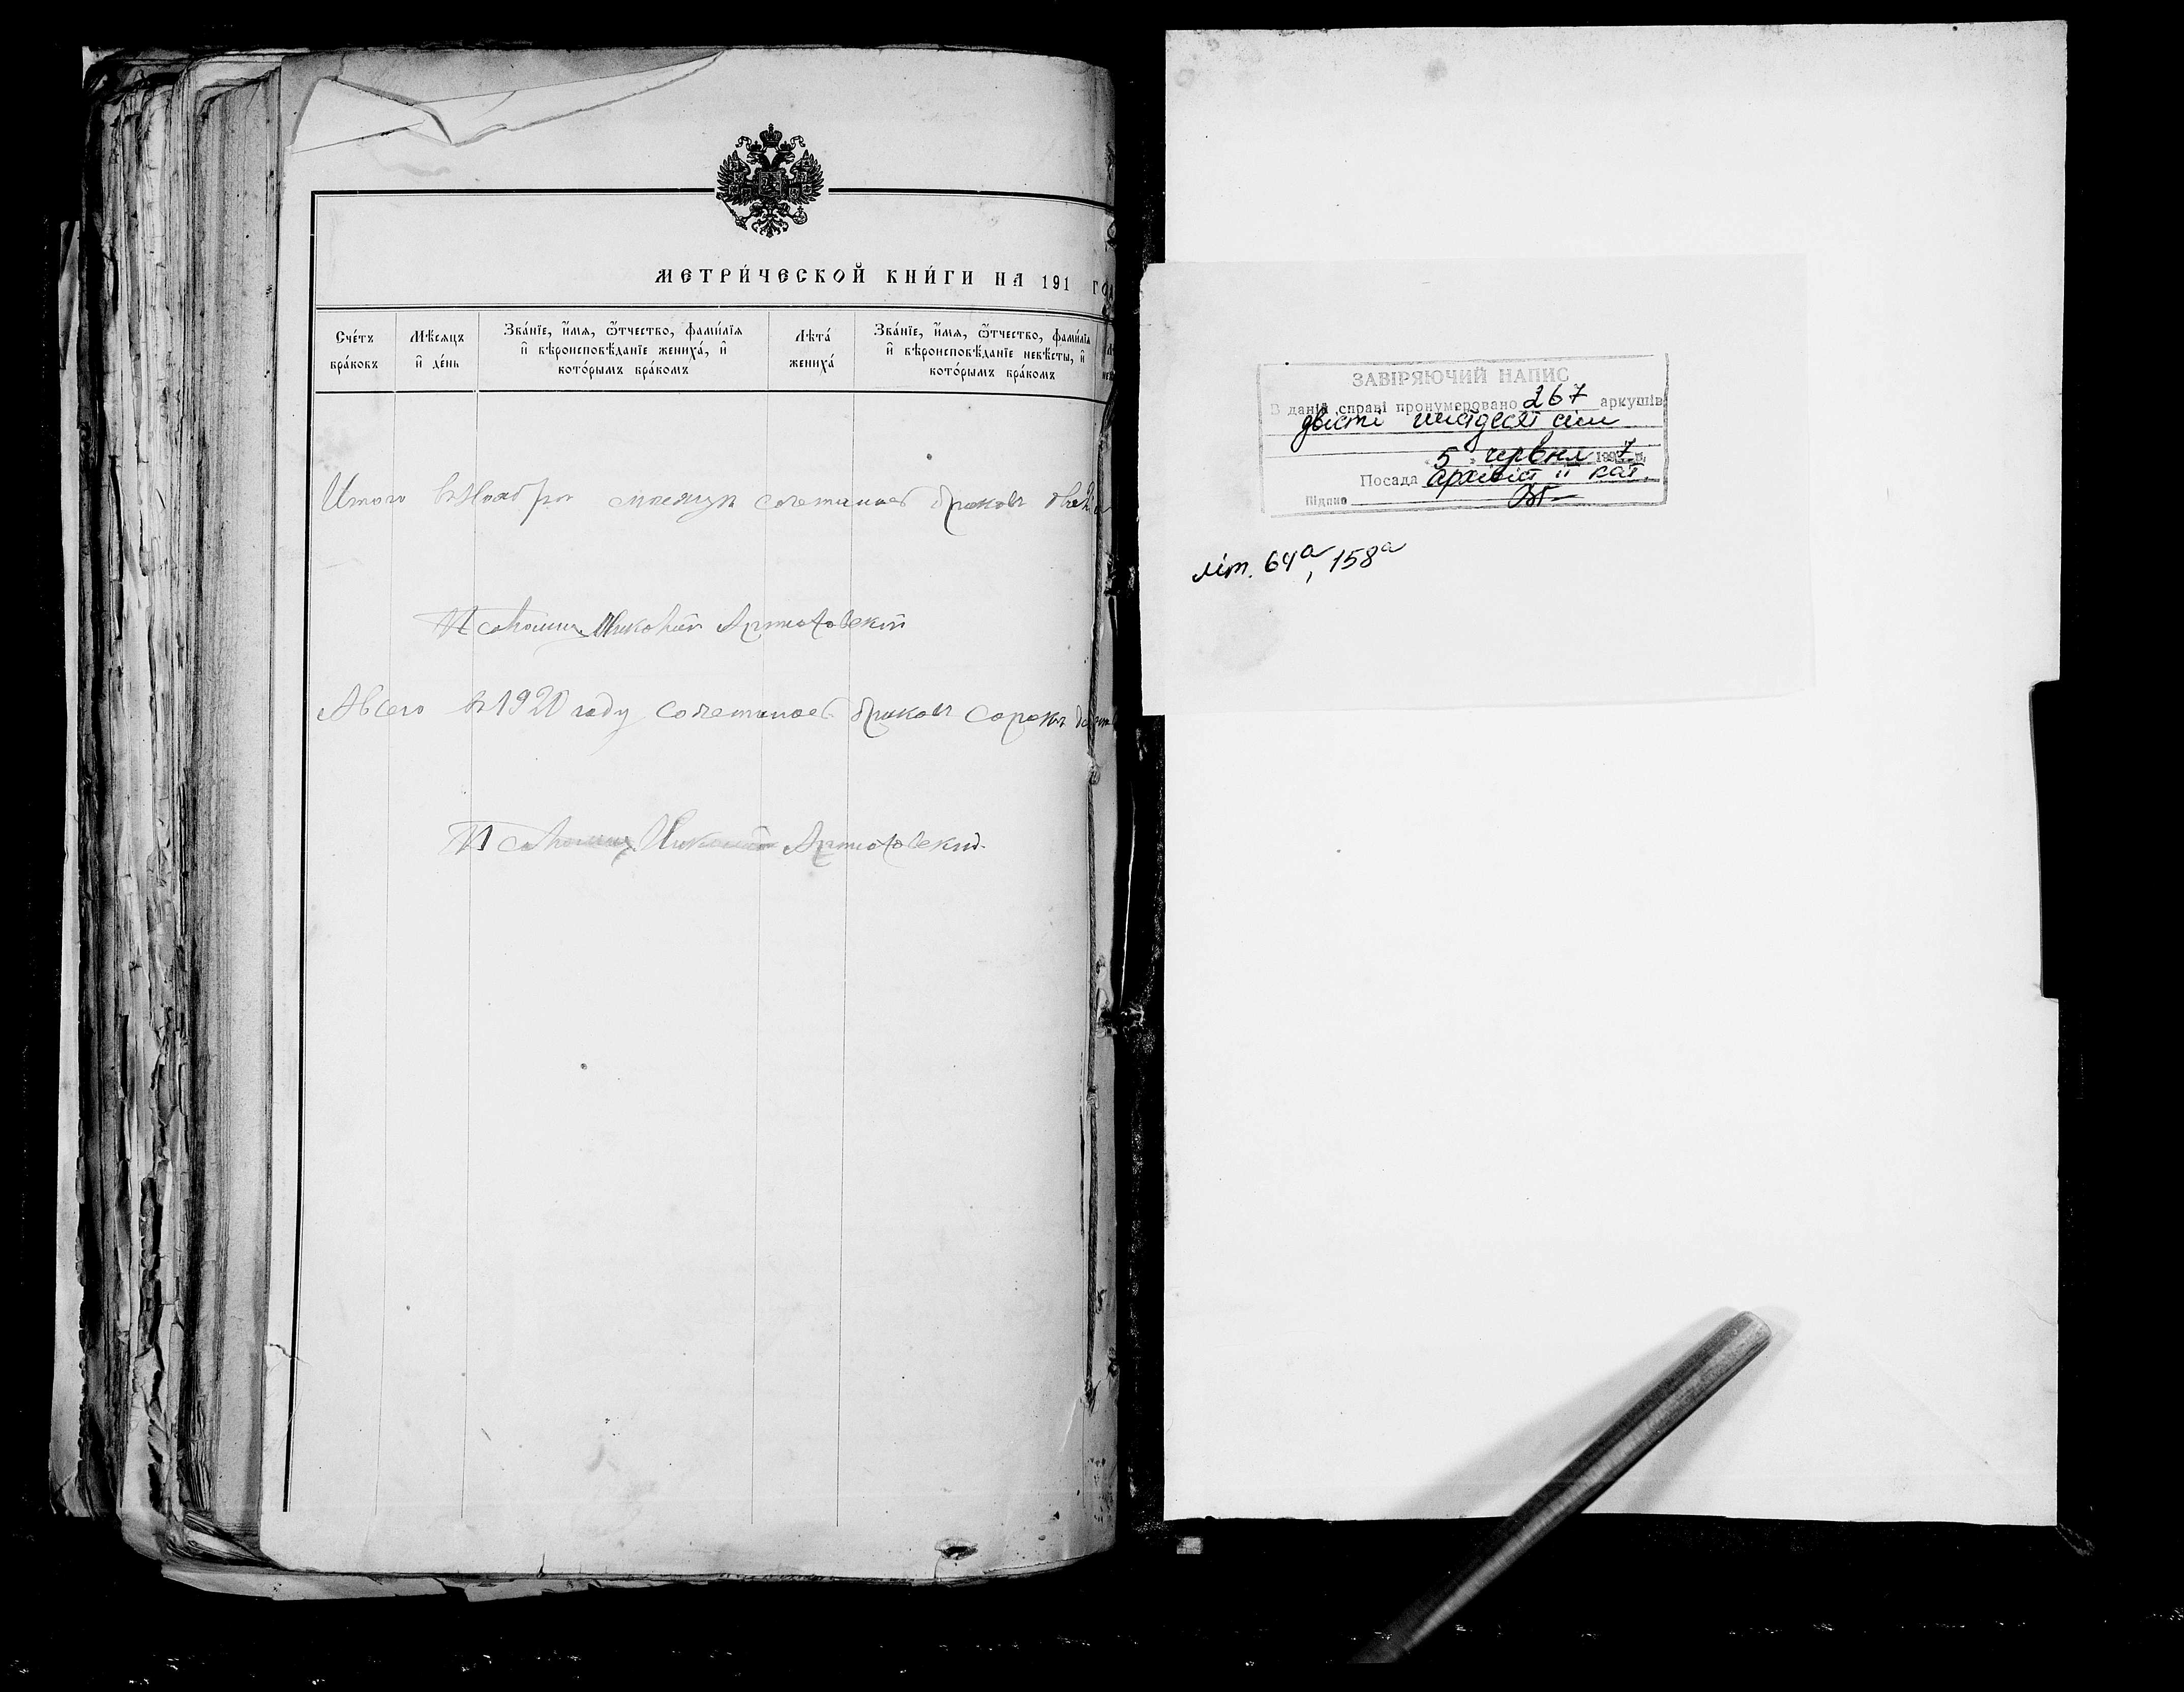 МЕТРИ́ЧЕСКОЙ КНИ́ГИ НА 191
Сче́тъ бра́ковъ
Мѣ́сяцъ и҆ де́нь
Зва́нїе, и҆́мѧ, ѻ҆́тчество, фами́лїѧ и҆ вѣроисповѣ́данїе жениха́, и҆ кото́рымъ бра́комъ
Лѣта́ жениха́
Зва́нїе, и҆́мѧ, ѻ҆́тчество, фами́лїѧ и҆ вѣроисповѣ́данїе невѣ́сты, и҆ кото́рымъ бра́комъ
Итого въ Ноябрѣ мѣсяцѣ сочеталось браковъ
Псаломщ Николай Артюховскій
А всего въ 1920 году сочеталось браковъ сорокъ
Псаломщ Николай Артюховскій
ЗАВІРЯЮЧИЙ НАПИС
В даній справі пронумеровано 267 аркушів
двісті шістдесят сім
"5" червня 1997 р.
Посада архівіст II кат.
Підпис
літ. 64а, 158а